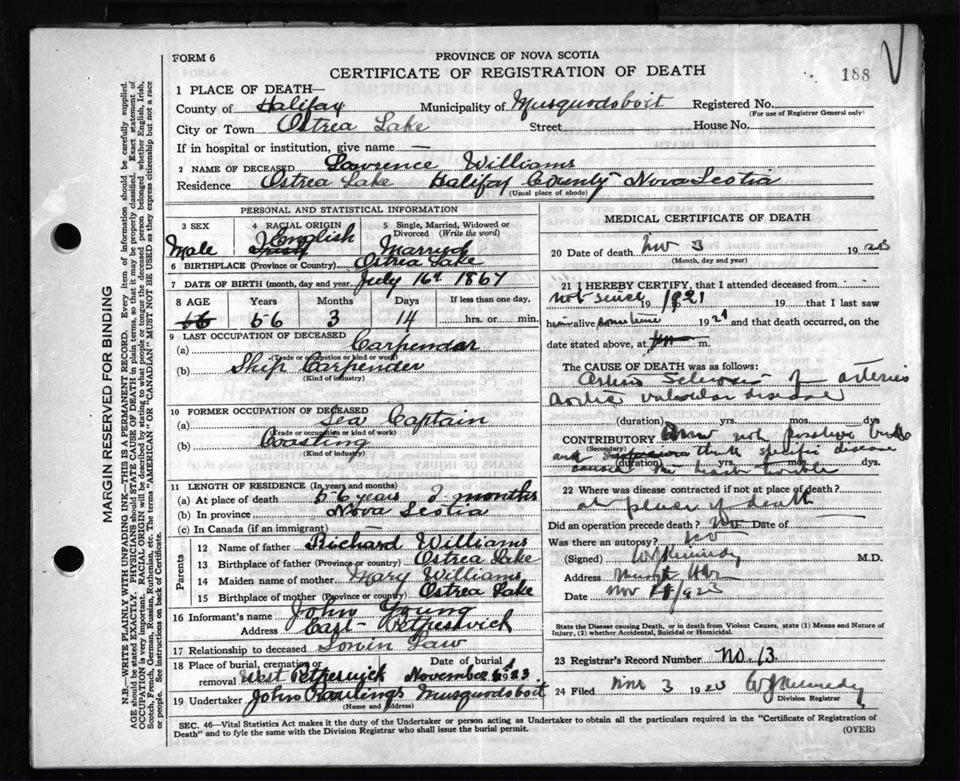 FORM 6
PROVINCE OF NOVA SCOTIA
CERTIFICATE OF REGISTRATION OF DEATH
188
1 PLACE OF DEATH—
County of Halifax Municipality of Musquodoboit Registered No.
(For use of Registrar General only)
City or Town Ostrea Lake Street House No.
If in hospital or institution, give name —
2 NAME OF DECEASED Lawrence Williams
Residence Ostrea Lake Halifax County Nova Scotia
(Usual place of abode)
PERSONAL AND STATISTICAL INFORMATION
3 SEX Male
4 RACIAL ORIGIN English
5 Single, Married, Widowed or Divorced (Write the word) Married
6 BIRTHPLACE (Province or Country) Ostrea Lake
7 DATE OF BIRTH (month, day and year) July 16th 1867
8 AGE Years Months Days If less than one day,
56 56 3 14 hrs. or min.
9 LAST OCCUPATION OF DECEASED
(a) Carpender
(Trade or occupation or kind of work)
(b) Ship Carpender
(Kind of industry)
10 FORMER OCCUPATION OF DECEASED
(a) Sea Captain
(Trade or occupation or kind of work)
(b) Coasting
(Kind of industry)
11 LENGTH OF RESIDENCE (In years and months)
(a) At place of death 56 years 3 months
(b) In province Nova Scotia
(c) In Canada (if an immigrant)
Parents
12 Name of father Richard Williams
13 Birthplace of father (Province or country) Ostrea Lake
14 Maiden name of mother Mary Williams
15 Birthplace of mother (Province or country) Ostrea Lake
16 Informant's name John Young
Address East Petpeswick
17 Relationship to deceased Sowin Law
18 Place of burial, cremation or removal West Petpeswick Date of burial November 6 1923
19 Undertaker John Rawlings Musquodoboit
(Name and Address)
MEDICAL CERTIFICATE OF DEATH
20 Date of death Nov 3 1923
(Month, day and year)
21 I HEREBY CERTIFY, that I attended deceased from
not since 19 1921 19 that I last saw
him alive sometime 1921 and that death occurred, on the
date stated above, at m.
The CAUSE OF DEATH was as follows:
Arterio Sclerosis of arteries
aortic valvular disease
(duration) yrs. mos. dys
CONTRIBUTORY not positive but
(Secondary)
think specific disease
(duration) yrs. mos. dys.
caused the heart trouble
22 Where was disease contracted if not at place of death?
at place of death
Did an operation precede death? No Date of
Was there an autopsy? No
(Signed) W J Kennedy M.D.
Address
Date Nov 1923
State the Disease causing Death, or in death from Violent Causes, state (1) Means and Nature of
Injury, (2) whether Accidental, Suicidal or Homicidal.
23 Registrar's Record Number No. 13
24 Filed Nov 3 1923 W J Kennedy
Division Registrar
SEC. 46—Vital Statistics Act makes it the duty of the Undertaker or person acting as Undertaker to obtain all the particulars required in the "Certificate of Registration of
Death" and to fyle the same with the Division Registrar who shall issue the burial permit.
(OVER)
MARGIN RESERVED FOR BINDING
N.B.—WRITE PLAINLY WITH UNFADING INK—THIS IS A PERMANENT RECORD. Every item of information should be carefully supplied.
AGE should be stated EXACTLY. PHYSICIANS should STATE CAUSE OF DEATH in plain terms, so that it may be properly classified. Exact statement of
OCCUPATION is very important. RACIAL ORIGIN will be described by stating to what people or tongue the deceased person belonged whether English, Irish,
Scotch, French, German, Russian, Ruthenian, etc. The terms "AMERICAN" or "CANADIAN" MUST NOT BE USED as they express citizenship but not a race
or people. See instructions on back of Certificate.